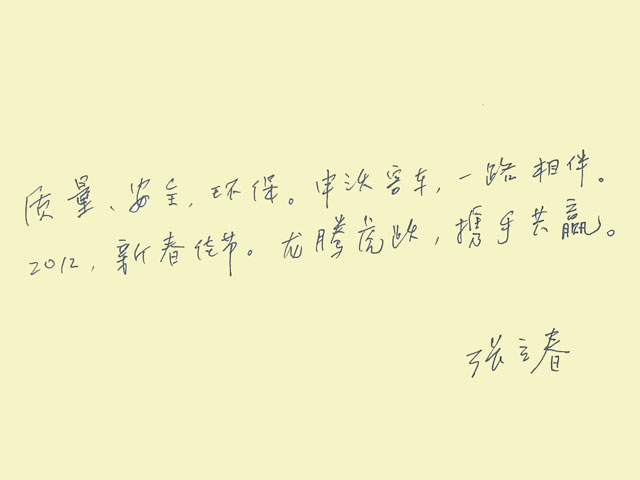 质量、安全,环保。申沃客车,一路相伴。
2012,新春佳节。龙腾虎跃,携手共赢。
张立春